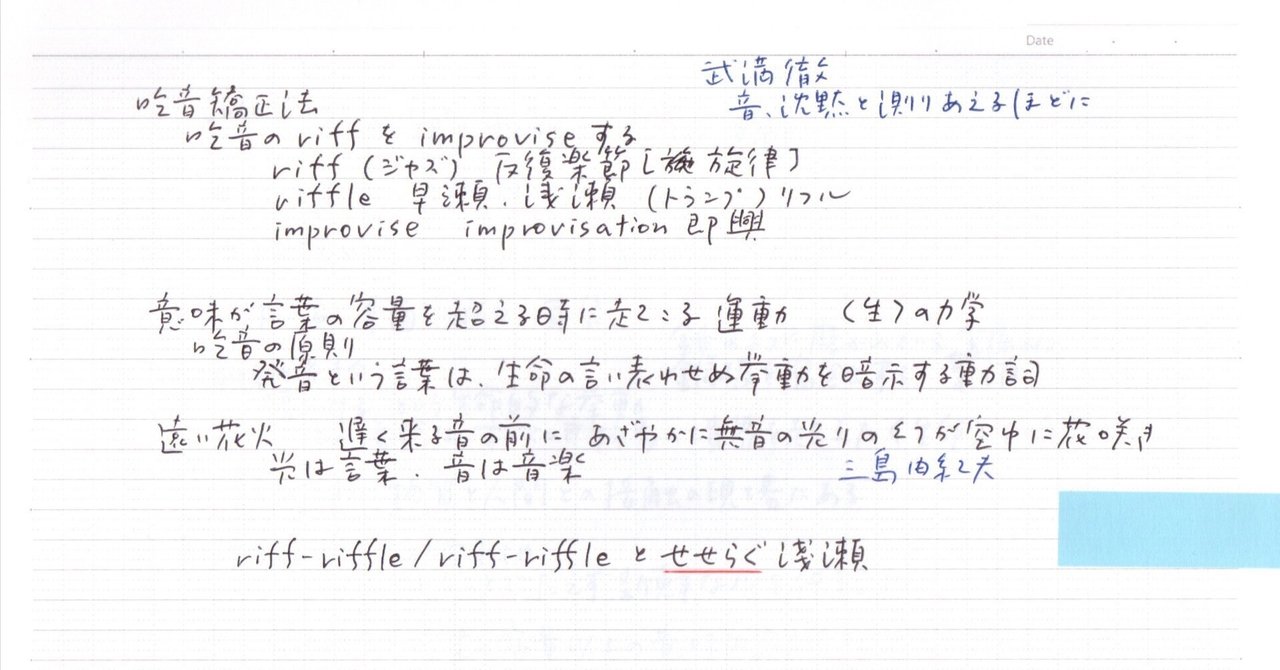 Date
武満徹
音、沈黙と測りあえるほどに
吃音矯正法
吃音のriffをimproviseする
riff (ジャズ) 反復楽節[旋律]
riffle 早瀬、浅瀬 (トランプ)リフル
improvise improvisation 即興
意味が言葉の容量を超える時に起こる運動 〈生〉の力学
吃音の原則
発音という言葉は、生命の言い表わせぬ挙動を暗示する動詞
遠い花火 遅く来る音の前に あざやかに無音の光りの幻が空中に花咲き
光は言葉、音は音楽
三島由紀夫
riff-riffle / riff-riffle と せせらぐ 浅瀬